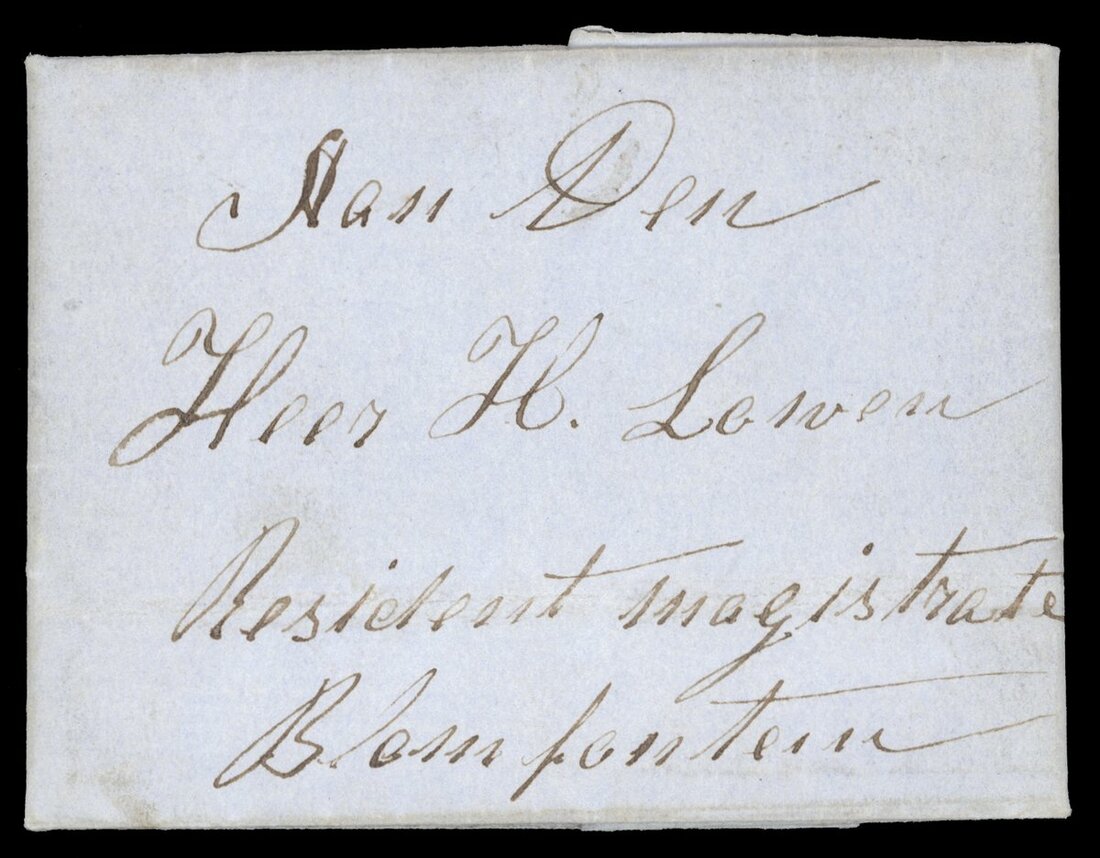 Aan Den
Heer H. Lowen
Resident magistrate
Blomfontein